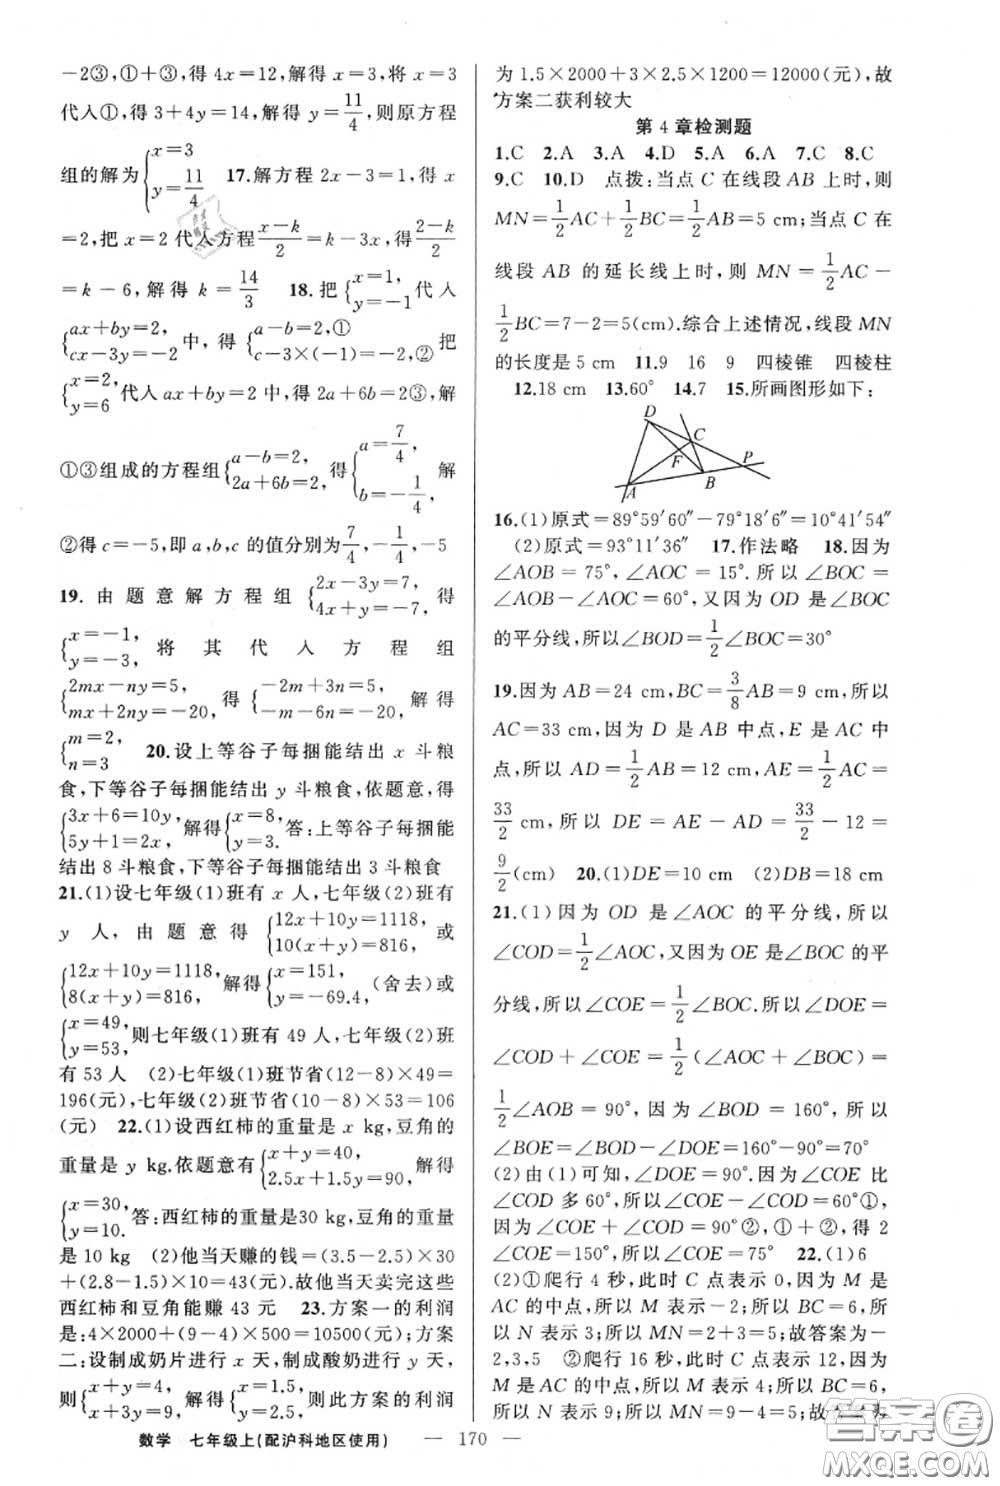 －2③,①＋③,得 4x＝12,解得 x＝3,将 x＝3
代入①,得 3＋4y＝14,解得 y＝11/4,则原方程
组的解为{x＝3 y＝11/4 17.解方程 2x－3＝1,得 x
＝2,把 x＝2 代入方程(x－k)/2＝k－3x,得(2－k)/2
＝k－6,解得 k＝14/3 18.把{x＝1, y＝－1代入
{ax＋by＝2, cx－3y＝－2中,得{a－b＝2,① c－3×(－1)＝－2,②把
{x＝2, y＝6代入 ax＋by＝2 中,得 2a＋6b＝2③,解
①③组成的方程组{a－b＝2, 2a＋6b＝2,得{a＝7/4, b＝－1/4,解
②得 c＝－5,即 a,b,c 的值分别为7/4,－1/4,－5
19.由题意解方程组{2x－3y＝7, 4x＋y＝－7,得
{x＝－1, y＝－3,将其代入方程组
{2mx－ny＝5, mx＋2ny＝－20,得{－2m＋3n＝5, －m－6n＝－20,解得
{m＝2 n＝3 20.设上等谷子每捆能结出 x 斗粮
食,下等谷子每捆能结出 y 斗粮食,依题意,得
{3x＋6＝10y, 5y＋1＝2x,解得{x＝8, y＝3.答:上等谷子每捆能
结出 8 斗粮食,下等谷子每捆能结出 3 斗粮食
21.(1)设七年级(1)班有 x 人,七年级(2)班有
y 人,由题意得{12x＋10y＝1118, 10(x＋y)＝816,或
{12x＋10y＝1118, 8(x＋y)＝816,解得{x＝151, y＝－69.4,(舍去)或
{x＝49, y＝53,则七年级(1)班有 49 人,七年级(2)班
有 53 人 (2)七年级(1)班节省(12－8)×49＝
196(元),七年级(2)班节省(10－8)×53＝106
(元) 22.(1)设西红柿的重量是 x kg,豆角的
重量是 y kg.依题意有{x＋y＝40, 2.5x＋1.5y＝90,解得
{x＝30, y＝10.答:西红柿的重量是30 kg,豆角的重量
是 10 kg (2)他当天赚的钱＝(3.5－2.5)×30
＋(2.8－1.5)×10＝43(元).故他当天卖完这些
西红柿和豆角能赚 43 元 23.方案一的利润
是:4×2000＋(9－4)×500＝10500(元);方案
二:设制成奶片进行 x 天,制成酸奶进行 y 天,
则{x＋y＝4, x＋3y＝9,解得{x＝1.5, y＝2.5,则此方案的利润
为 1.5×2000＋3×2.5×1200＝12000(元),故
方案二获利较大
第 4 章检测题
1.C 2.A 3.A 4.D 5.A 6.A 7.C 8.C
9.C 10.D 点拨:当点 C 在线段 AB 上时,则
MN＝1/2AC＋1/2BC＝1/2AB＝5 cm;当点 C 在
线段 AB 的延长线上时,则 MN＝1/2AC－
1/2BC＝7－2＝5(cm).综合上述情况,线段 MN
的长度是 5 cm 11.9 16 9 四棱锥 四棱柱
12.18 cm 13.60° 14.7 15.所画图形如下:
D
C
F
P
A
B
16.(1)原式＝89°59′60″－79°18′6″＝10°41′54″
(2)原式＝93°11′36″ 17.作法略 18.因为
∠AOB＝75°,∠AOC＝15°.所以∠BOC＝
∠AOB－∠AOC＝60°,又因为 OD 是∠BOC
的平分线,所以∠BOD＝1/2∠BOC＝30°
19.因为 AB＝24 cm,BC＝3/8AB＝9 cm,所以
AC＝33 cm,因为 D 是 AB 中点,E 是 AC 中
点,所以 AD＝1/2AB＝12 cm,AE＝1/2AC＝
33/2 cm,所以 DE＝AE－AD＝33/2－12＝
9/2(cm) 20.(1)DE＝10 cm (2)DB＝18 cm
21.(1)因为 OD 是∠AOC 的平分线,所以
∠COD＝1/2∠AOC,又因为 OE 是∠BOC 的平
分线,所以∠COE＝1/2∠BOC.所以∠DOE＝
∠COD＋∠COE＝1/2(∠AOC＋∠BOC)＝
1/2∠AOB＝90°,因为∠BOD＝160°,所以
∠BOE＝∠BOD－∠DOE＝160°－90°＝70°
(2)由(1)可知,∠DOE＝90°.因为∠COE 比
∠COD 多 60°,所以∠COE－∠COD＝60°①,
因为∠COE＋∠COD＝90°②,①＋②,得 2
∠COE＝150°,所以∠COE＝75° 22.(1)6
(2)①爬行 4 秒,此时 C 点表示 0,因为 M 是
AC 的中点,所以 M 表示－2;所以 BC＝6,所
以 N 表示 3;所以 MN＝2＋3＝5;故答案为－
2,3,5 ②爬行 16 秒,此时 C 点表示 12,因为
M 是 AC 的中点,所以 M 表示 4;所以 BC＝6,
所以 N 表示 9;所以 MN＝9－4＝5,
数学 七年级上(配沪科地区使用) — 170 —
答案卷
MXQE.COM